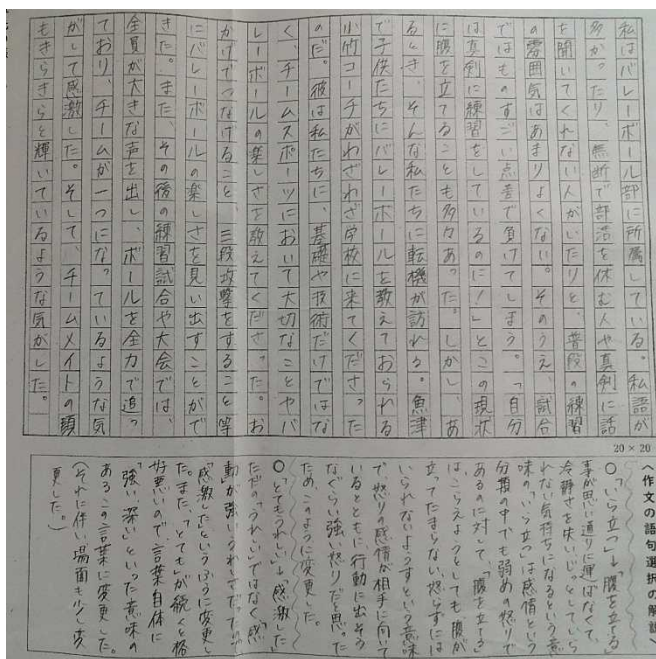 私はバレーボール部に所属している。私語が
多かったり、無断で部活を休む人や真剣に話
を聞いてくれない人がいたりと、普段の練習
の雰囲気はあまりよくない。そのうえ、試合
ではものすごい点差で負けてしまう。「自分
は真剣に練習をしているのに！」とこの現状
に腹を立てることも多々あった。しかし、あ
るとき、そんな私たちに転機が訪れる。魚津
で子供たちにバレーボールを教えておられる
小竹コーチがわざわざ学校に来てくださった
のだ。彼は私たちに、基礎や技術だけではな
く、チームスポーツにおいて大切なことやバ
レーボールの楽しさを教えてくださった。お
かげでつなげること、三段攻撃をすること等
にバレーボールの楽しさを見い出すことがで
きた。また、その後の練習試合や大会では、
全員が大きな声を出し、ボールを全力で追っ
ており、チームが一つになっているような気
がして感激した。そして、チームメイトの顔
もきらきらと輝いているような気がした。
20×20
〈作文の語句選択の解説〉
○「いら立つ」→「腹を立てる」
事が思い通りに運ばなくて、
冷静さを失い、じっとしていら
れない気持ちになるという意
味の「いら立つ」は感情という
分類の中でも弱めの怒りで
あるのに対して、「腹を立てる」
は、こらえようとしても、腹が
立ってたまらない、怒らずには
いられないようすという意味
で、怒りの感情が相手に向いて
いるとともに行動に出そう
なぐらい強い怒りだと思った
ため、このように変更した。
○「とてもうれしい」→「感激した」
ただの「うれしい」ではなく「感
動」が強いうれしさだったので
「感激した」というふうに変更し
た。また、「とても」が続くと格
好悪いので、言葉自体に
「強い、深い」といった意味の
あるこの言葉に変更した。
（それに伴い、場面も少し変
更した。）